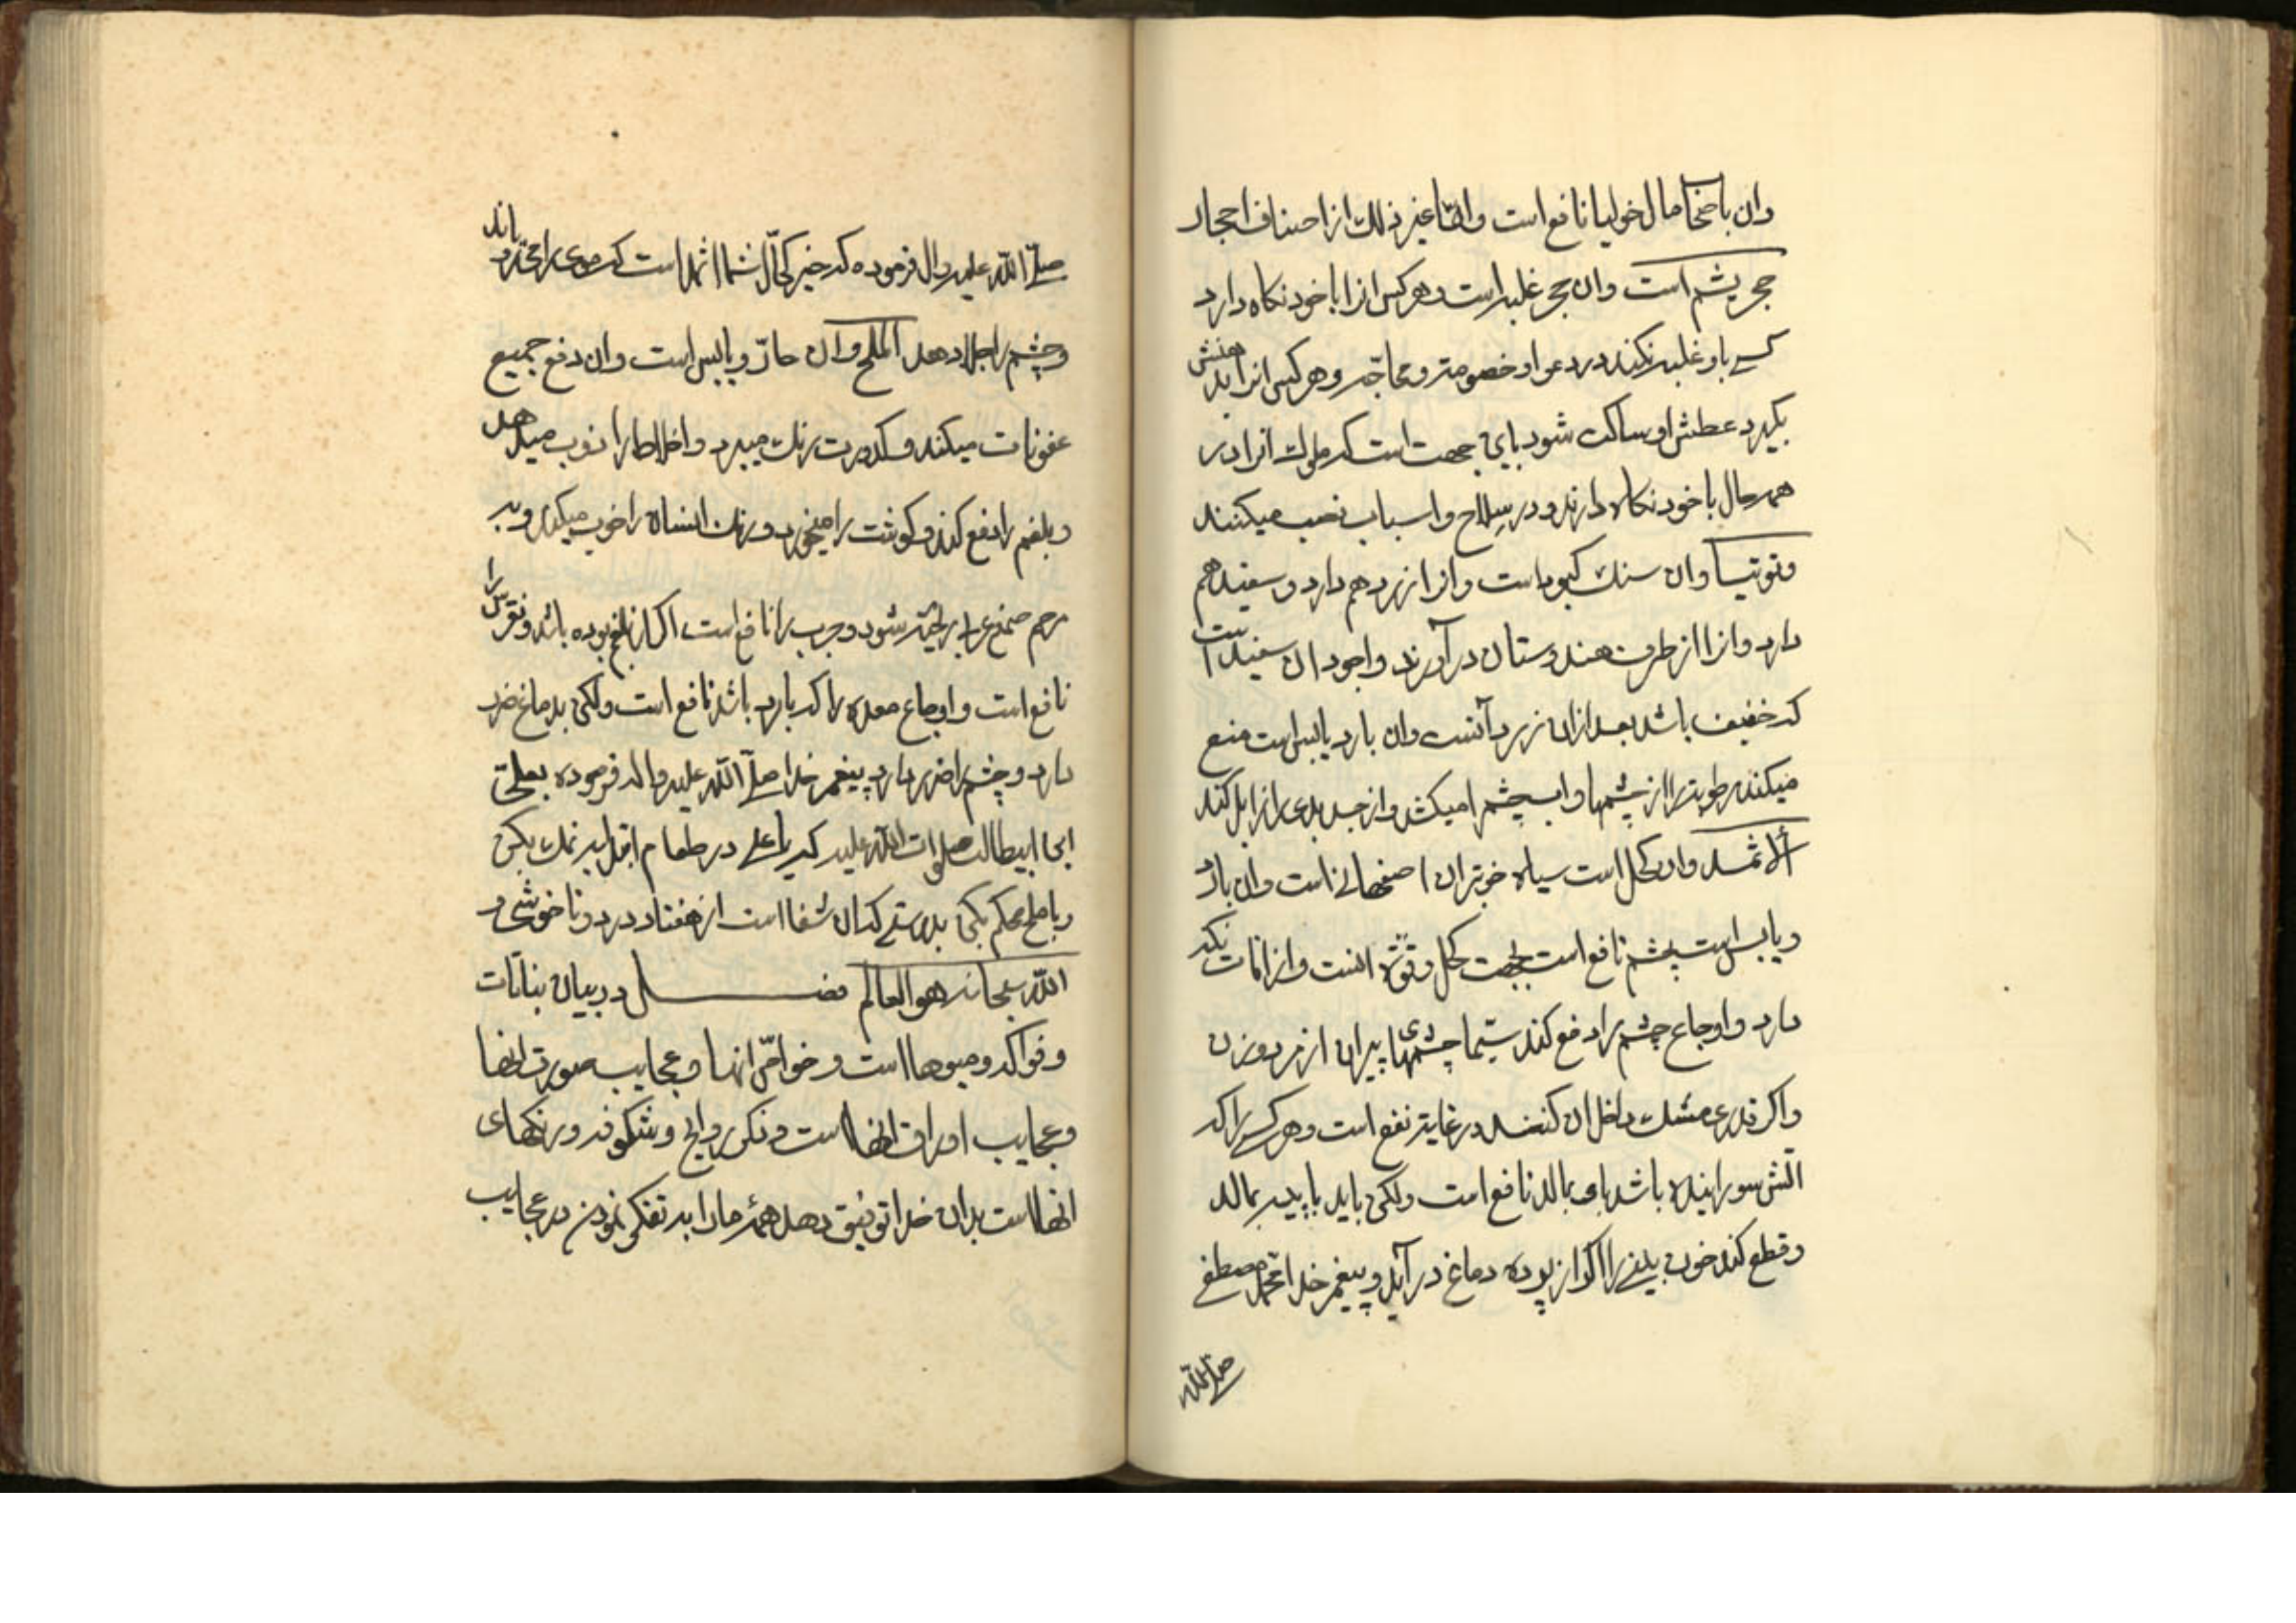 وان باصحاب مالخولیا نافع است وایضا غیر ذلك از اصناف احجار
حجر یشم است وان حجر غلبه است وهر کس انرا با خود نکاه دارد
کسے باو غلبه نکند در دعوا و خصومته و محاجّه وهر کس انرا بدهنش
بکیرد عطش او ساکت شود باین جهت است که ملوك انرا در
همه حال با خود نکاه دارند و در سلاح و اسباب نصب میکنند
وتوتیا وان سنك کبود است وازا زرد هم دارد و سفید هم
دارد وانرا از طرف هندوستان در آورند واجود ان سفید است
که خفیف باشد بعد ازان زرد آنست وان بارد یابس است منع
میکند رطوبترا از چشمها واب چشم را میکشد واز جسد بدی را زایل کند
ألاثمد وان کحل است سیاه خوبتران اصفهانے است وان بارد
ویابس است بچشم نافع است بجهت کحل وقوّة انست وازافات نکه
دارد و اوجاع چشم را دفع کند سیّما چشمهای پیران از مرد وزن
واکر قدری مشك داخل ان کنند در غایة نفع است وهر کسے را که
اتش سورانیده باشد باو بمالد نافع است ولکن باید با پیه بمالد
وقطع کند خون بینے را اکر از پرده دماغ در آید و پیغمبر خدا محمّد مصطفے
صلے اللّه
صلّے اللّه علیه وال فرموده که خیر کحّال شما اثمد است که موی را میرویاند
وچشم را جلا دهد الملح وان حارّ ویابس است وان دفع جمیع
عفونات میکند و کدورت رنك میبرد واخلاط را ذوب میدهد
وبلغم را دفع کند وکوشت را میخورد ورنك انسان را خوب میکند و به
مرحم صمغ عربے ریخته شود وجرب را نافع است اکر از بلغم بوده باشد ونقرس را
نافع است و اوجاع معده را که بارد باشد نافع است ولکن بدماغ ضرر
دارد وچشم را ضرر دارد پیغمبر خدا صلّے اللّه علیه واله فرموده بعلیّ
ابن ابیطالب صلوات اللّه علیه که یا علے در طعام ابتدا به نمك بکن
وبا ملح محکم بکن بدرستے که ان شفا است از هفتاد درد و ناخوشے و
اللّه سبحانه هو العالم فصل در بیان نباتات
وفواکه ومیوها است وخواصّ انها وعجایب صورت انها
وعجایب اوراق انها است وذکر روایح وشکوفه ورنکهای
انها است بدان خدا توفیق دهد همهٔ مارا به تفکّر نمودن در عجایب